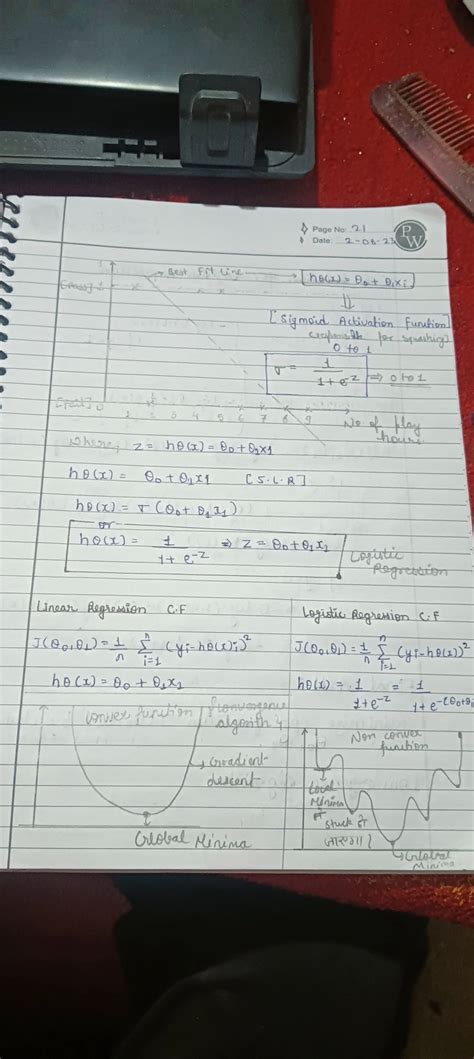 Page No: 21
Date: 2-08-23
PW
Best Fit Line
hθ(x) = θ0 + θ1x1
[Sigmoid Activation Function]
for squashing
0 to 1
σ = 1 / 1 + e^-z ⇒ 0 to 1
2 3 4 5 6 7 8 9
No of play
hours
where, z = hθ(x) = θ0 + θ1x1
hθ(x) = θ0 + θ1x1 [S.L.R]
hθ(x) = σ (θ0 + θ1x1)
or
hθ(x) = 1 / 1 + e^-z ⇒ z = θ0 + θ1x1
Logistic
Regression
Linear Regression C.F
J(θ0,θ1) = 1/n n∑i=1 (yi - hθ(x)i)²
hθ(x) = θ0 + θ1x1
Convex function
Convergence
algorith
Gradient
descent
Global Minima
Logistic Regression C.F
J(θ0,θ1) = 1/n n∑i=1 (yi - hθ(x))²
hθ(x) = 1 / 1 + e^-z = 1 / 1 + e^-(θ0+θ1
Non convex
function
Local
Minima
stuck हो
जाएगा
Global
Minima